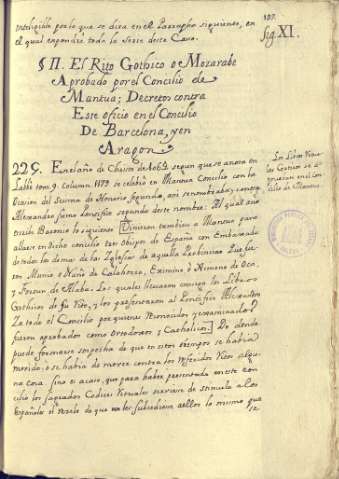 inteligible por lo que se dira en el Parrapho siguiente, en
el qual expondré toda la Serie deste Caso.
187.
sig. XI.
§ II. El Rito Gothico o Mozarabe
Aprobado por el Concilio de
Mantua; Decretos contra
Este oficio en el Concilio
De Barcelona, y en
Aragon
225. En el año de Christo de 1064 segun que se anota en
Labbè tom. 9. Column. 1179 se celebrò en Mantua Concilio con la
Ocasion del Scisma de Honorio Segundo, asi se nombraba, contra
Alexandro Summo Pontifice segundo deste nombre: Al qual año
escribe Baronio lo siguiente [Vinieron tambien a Mantua para
allarse en dicho concilio tres Obispos de España con Embaxada
de todas las demas de las Iglesias de aquella Provincia. Que fue
ron Munio o Nuño de Calahorra, Eximino o Ximeno de Oca,
y Fortun de Alaba. Los quales llevaron consigo los Libros
Gothicos de su Rito, y los presentaron al Pontifice Alexandro
Y a todo el Concilio por quienes reconocidos y examinados
fueron aprobados como Ortodoxos y Catholicos.] De donde
puede formarse sospecha de que en estos tiempos se habia
movido, o se habia de mover contra los referidos Ritos algu-
na cosa. Sino es acaso, que para haber presentado en este con-
cilio los sagrados Codices Rituales sirviese de stimulo a los
Españoles el recelo de que no les subcediera a ellos lo mismo que
se
Los Libros Ritua
les Goticos se a-
probaron en el Con
cilio de Mantua.